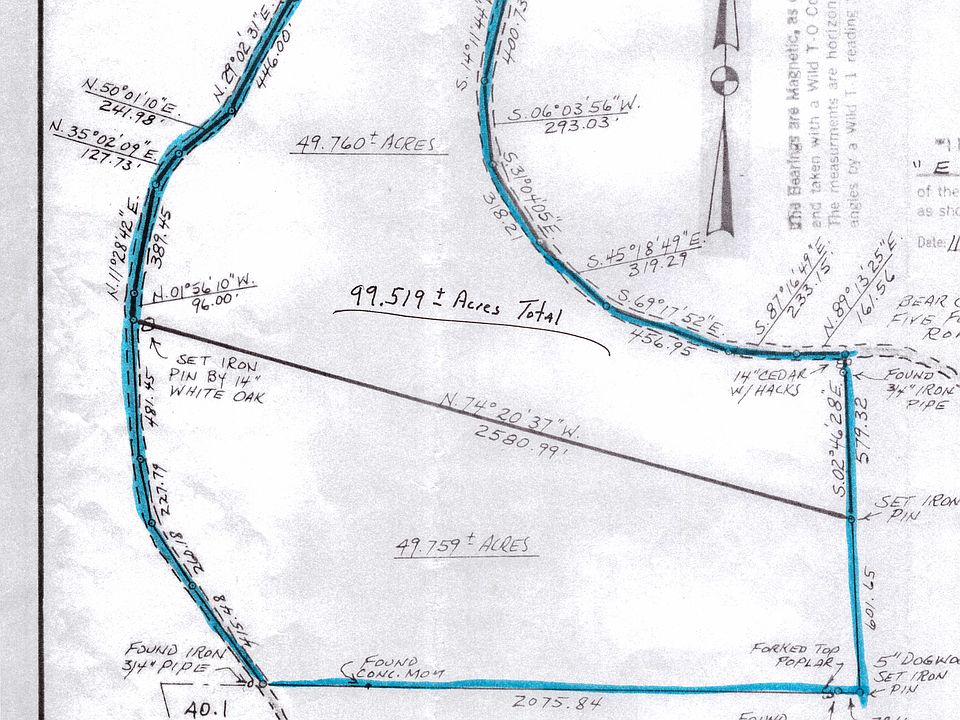 N.29°02'31"E.
446.00'
N.50°01'10"E.
241.98'
N.35°02'09"E.
127.73'
49.760± ACRES
S.14°11'44"
400.73
S.06°03'56"W.
293.03'
S.31°04'05"E.
318.21
S.45°18'49"E.
319.29
S.69°17'52"E.
456.95
S.87°16'49"E.
233.15'
N.89°13'25"E.
161.56
The Bearings are Magnetic, as
and taken with a Wild T-O Co
The measurments are horizon
angles by a Wild T-1 reading
" E
of the
as sho
Date:
N.11°28'42"E.
389.45
N.01°56'10"W.
96.00'
99.519± Acres Total
BEAR C
FIVE F
RO
SET IRON
PIN BY 14"
WHITE OAK
14" CEDAR
W/HACKS
FOUND
3/4" IRON
PIPE
N.74°20'37"W.
2580.99'
S.02°46'28"E.
579.32
481.45
227.79
260.18
415.48
SET IRON
PIN
49.759± ACRES
601.65
FOUND IRON
3/4" PIPE
FOUND
CONC. MON
FORKED TOP
POPLAR
5" DOGWO
SET IRON
PIN
2075.84
40.1
FOUND